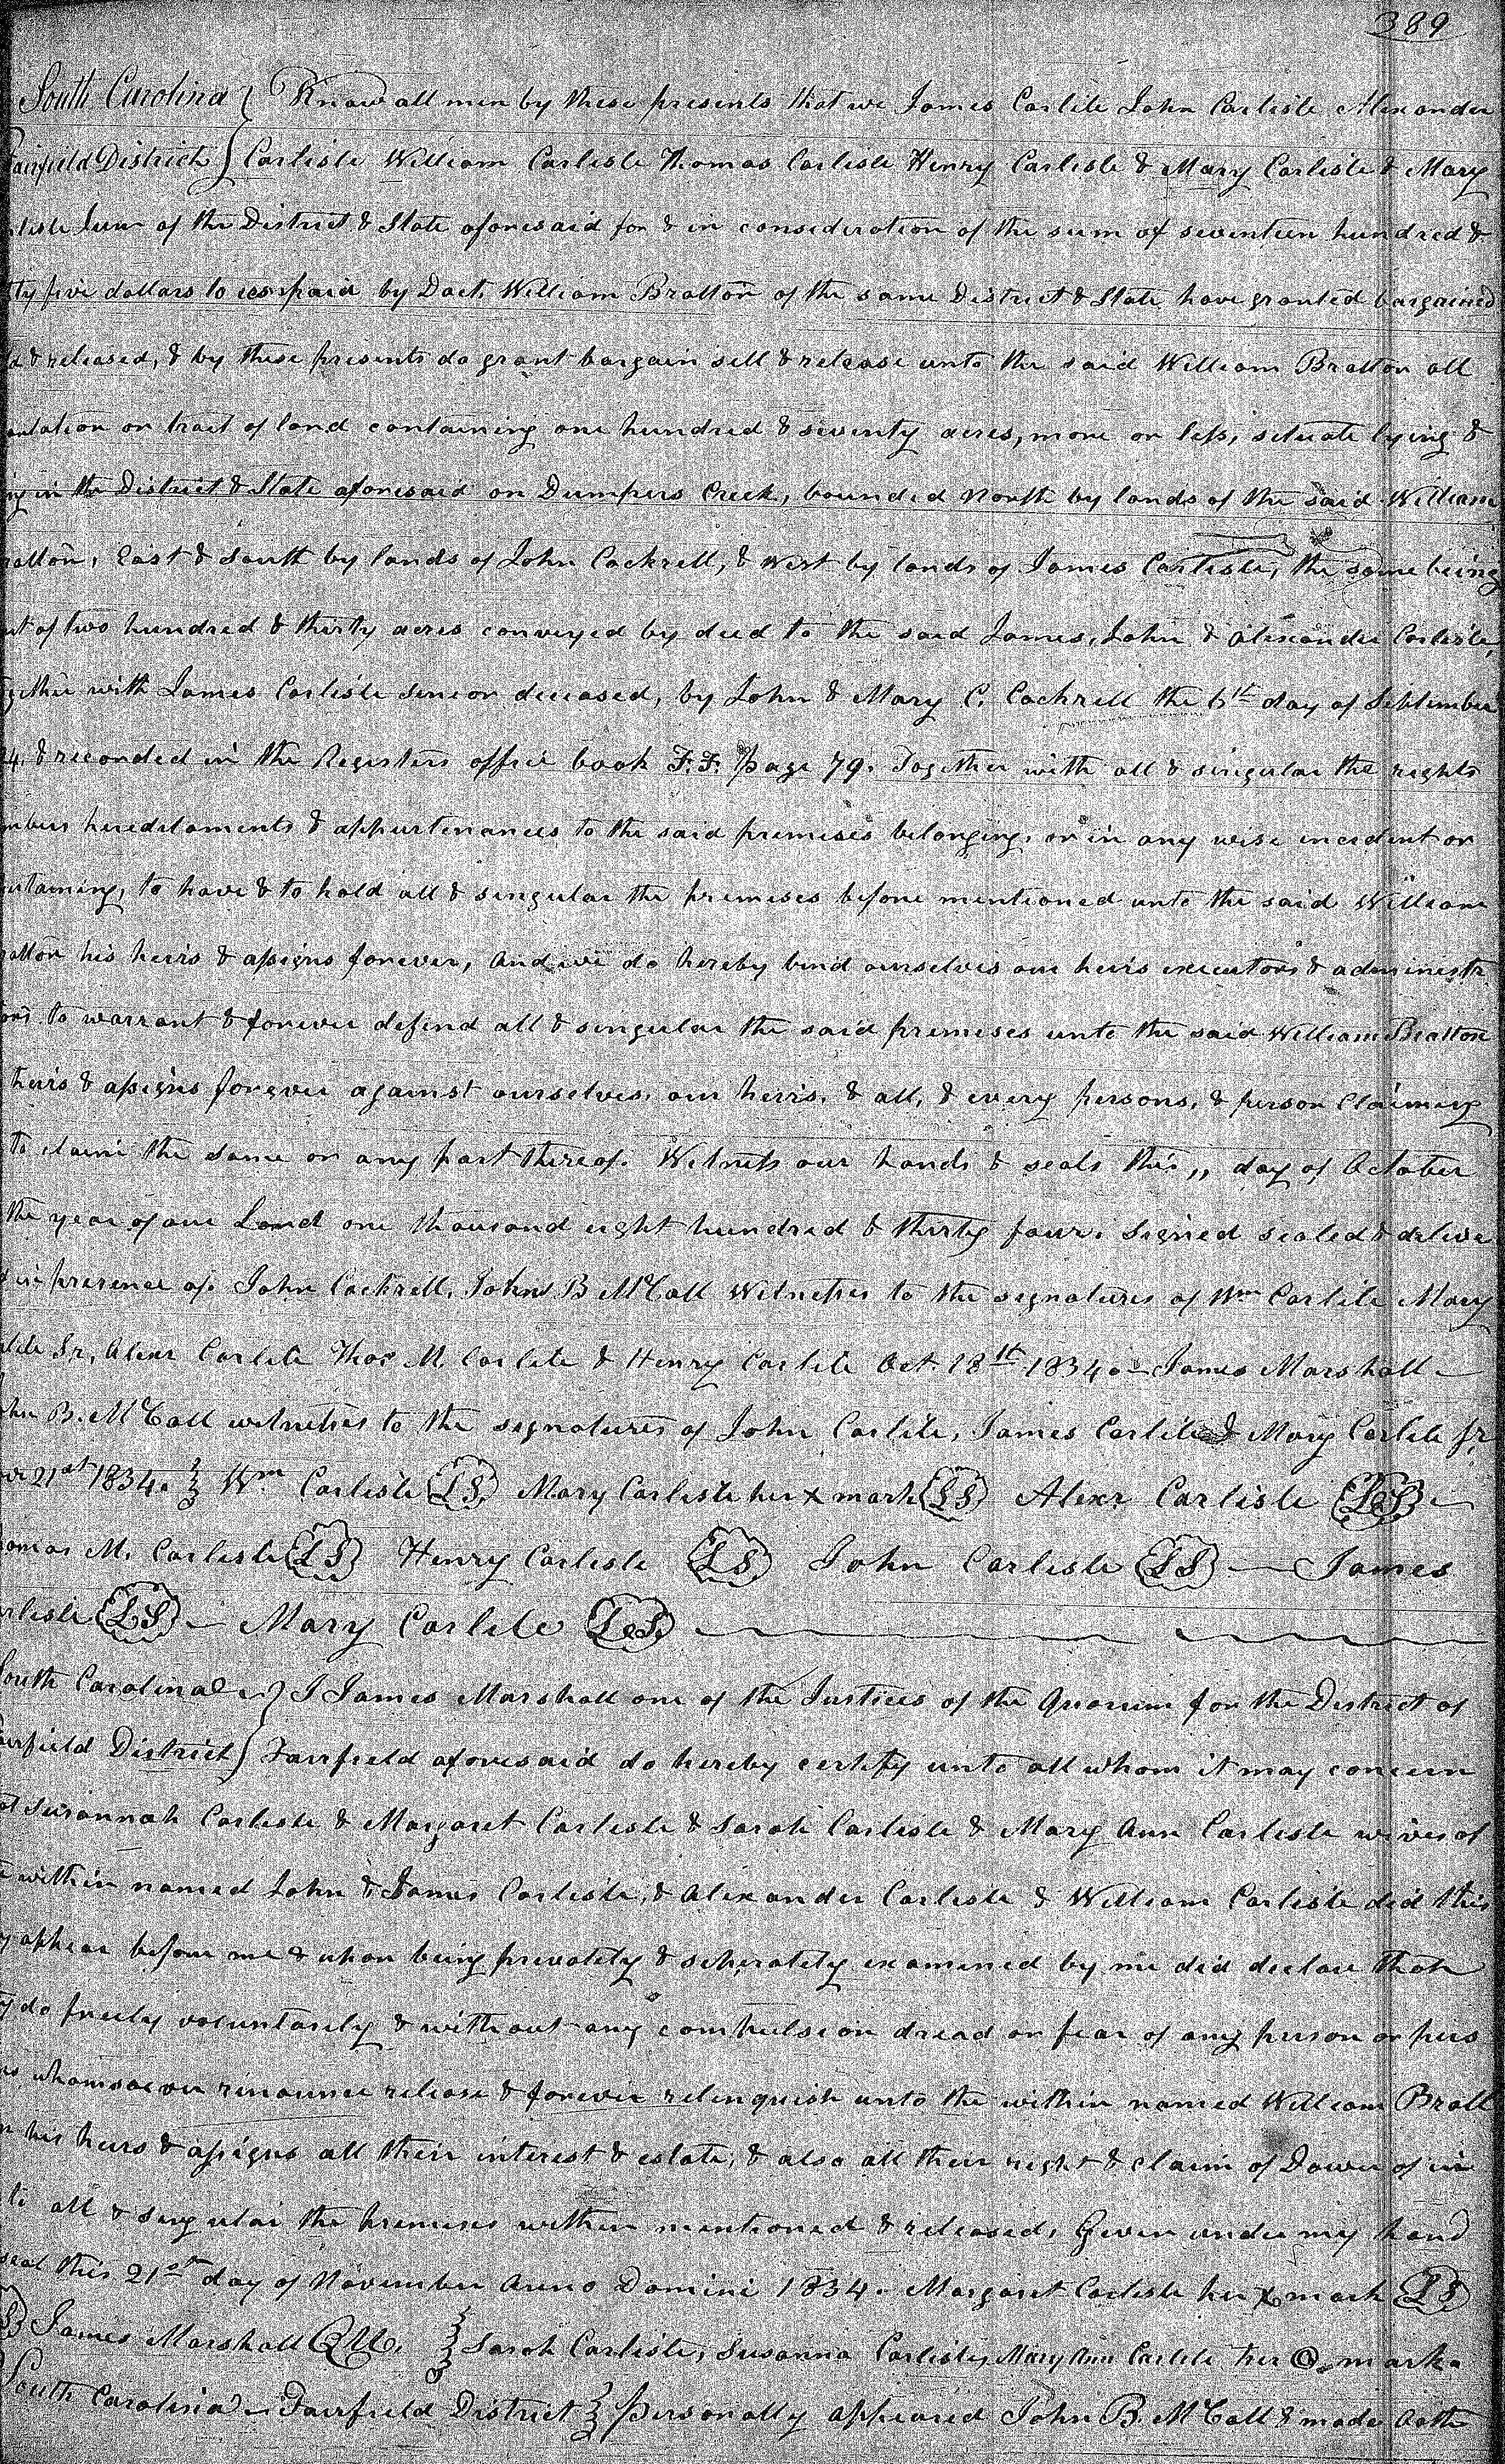 389
South Carolina } Know all men by these presents that we James Carlile John Carlisle Alexander
Fairfield District } Carlisle William Carlisle Thomas Carlisle Henry Carlisle & Mary Carlisle & Mary
lisle Junr of the District & State aforesaid for & in consideration of the sum of seventeen hundred &
ty five dollars to us paid by Doct. William Bratton of the same District & State have granted bargained
ld & released, & by these presents do grant bargain sell & release unto the said William Bratton all
antation or tract of land containing one hundred & seventy acres, more or less, situate lying &
ng in the District & State aforesaid on Dumpers Creek, bounded North by lands of the said William
ratton, East & South by lands of John Cockrell, & West by lands of James Carlisle, the same being
rt of two hundred & thirty acres conveyed by deed to the said James, John & Alexander Carlisle,
gether with James Carlisle senior deceased, by John & Mary C. Cockrell the 6th day of September
4. & recorded in the Registers office book F.F. page 79. Together with all & singular the rights
mbers hereditaments & appurtenances to the said premises belonging, or in any wise incident or
ertaining, to have & to hold all & singular the premises before mentioned unto the said William
ratton his heirs & assigns forever, And we do hereby bind ourselves our heirs executors & administr
ors to warrant & forever defend all & singular the said premises unto the said William Bratton
heirs & assigns forever against ourselves, our heirs, & all, & every persons, & person Claiming
to claim the same or any part thereof. Witness our hands & seals this ,, day of October
the year of our Lord one thousand eight hundred & thirty four. Signed sealed & delive
d in presence of. John Cockrell, John B McCall Witnesses to the signatures of Wm Carlile Mary
lile Sr, Alexr Carlile Thos M. Carlile & Henry Carlile Oct. 18th 1834.— James Marshall —
ohn B. McCall witnesses to the signatures of John Carlile, James Carlile & Mary Carlile Jr
ov 21st 1834. } Wm Carlisle (LS) Mary Carlisle her x mark (LS) Alexr Carlisle (LS) —
omas M. Carlisle (LS) Henry Carlisle (LS) John Carlisle (LS) — James
arlisle (LS) — Mary Carlile (LS)
South Carolina } I James Marshall one of the Justices of the Quorum for the District of
airfield District } Fairfield aforesaid do hereby certify unto all whom it may concern
at Susannah Carlisle & Margaret Carlisle & Sarah Carlisle & Mary Ann Carlisle wives of
e within named John & James Carlisle, & Alexander Carlisle & William Carlisle did this
y appear before me & upon being privately & seperately examined by me did declare that
y do freely voluntarily & without any compulsion dread or fear of any person or pers
ns whomsoever renounce release & forever relinquish unto the within named William Bratt
n his heirs & assigns all their interest & estate, & also all their right & claim of Dower of in
to all & singular the premises within mentioned & released, Given under my hand
seal this 21st day of November Anno Domini 1834. Margaret Carlisle her x mark (LS)
James Marshall QM. } Sarah Carlisle, Susanna Carlisle, Mary Ann Carlile her O mark.
South Carolina — Fairfield District } Personally appeared John B. McCall & made oath